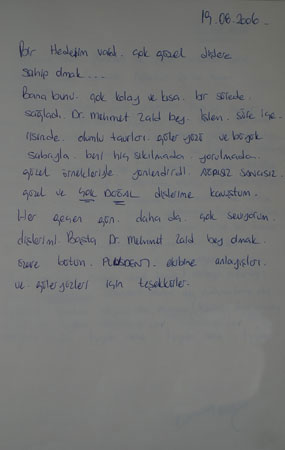 19.08.2006.
Bir Hedefim vardı. çok güzel dişlere
sahip olmak...
Bana bunu, çok kolay ve kısa bir sürede
sağladı. Dr. Mehmet Zaid bey. İşlem, süre içe
risinde. olumlu tavırları, güler yüzü ve büyük
sabrıyla, beni hiç sıkılmadan, yorulmadan.
güzel örnekleriyle yönlendirdi. Ağrısız sancısız.
güzel ve ÇOK DOĞAL dişlerime kavuştum.
Her geçen gün, daha da, çok seviyorum.
dişlerimi. Başta Dr. Mehmet Zaid bey olmak.
üzere bütün. ekibine anlayışları.
ve güler yüzleri için teşekkürler.